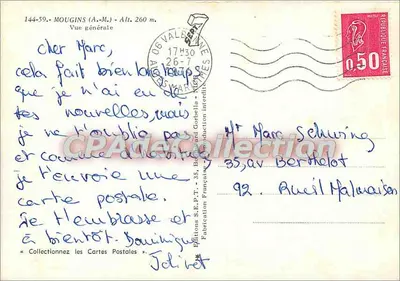 144-59. - MOUGINS (A.-M.) - Alt. 260 m.
Vue générale
Cher Marc,
cela fait bien longtemps
que je n'ai eu de
tes nouvelles, mais
je ne t'oublie pas
et comme d'
je t'envoie une
carte postale.
Je t'embrasse et
à bientôt. Dominique
Jolivet
« Collectionnez les Cartes Postales »
Editions S.E.P.T. - 33,
Fabrication Française - Reproduction interdite
06 VALBONNE
17H30
26-7
ALPES MARITIMES
SEPT
REPUBLIQUE FRANÇAISE
0,50
Mr Marc Schwing
35, av Berthelot
92. Rueil Malmaison
CPADeCollection